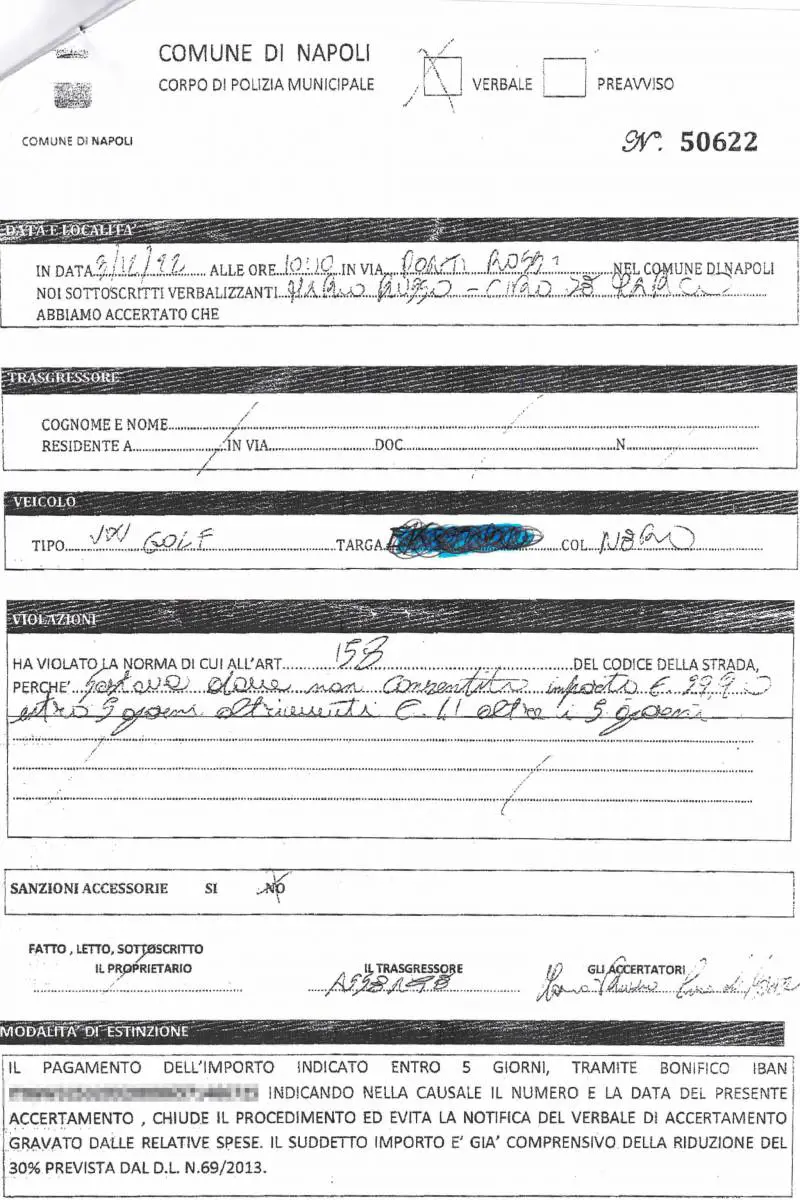 COMUNE DI NAPOLI
CORPO DI POLIZIA MUNICIPALE
VERBALE
PREAVVISO
COMUNE DI NAPOLI
N°. 50622
DATA E LOCALITA'
IN DATA 9/12/22 ALLE ORE 10:10 IN VIA PONTI ROSSI NEL COMUNE DI NAPOLI
NOI SOTTOSCRITTI VERBALIZZANTI RUSSO - CIRO
ABBIAMO ACCERTATO CHE
TRASGRESSORE
COGNOME E NOME
RESIDENTE A IN VIA DOC N
VEICOLO
TIPO VW GOLF TARGA COL NERO
VIOLAZIONI
HA VIOLATO LA NORMA DI CUI ALL'ART. 158 DEL CODICE DELLA STRADA,
PERCHE' Sostava dove non consentito importo E. 29,90
entro 5 giorni altrimenti E. 41 oltre i 5 giorni
SANZIONI ACCESSORIE SI NO
FATTO , LETTO, SOTTOSCRITTO
IL PROPRIETARIO IL TRASGRESSORE GLI ACCERTATORI
ASSENTE
MODALITA' DI ESTINZIONE
IL PAGAMENTO DELL'IMPORTO INDICATO ENTRO 5 GIORNI, TRAMITE BONIFICO IBAN
INDICANDO NELLA CAUSALE IL NUMERO E LA DATA DEL PRESENTE
ACCERTAMENTO , CHIUDE IL PROCEDIMENTO ED EVITA LA NOTIFICA DEL VERBALE DI ACCERTAMENTO
GRAVATO DALLE RELATIVE SPESE. IL SUDDETTO IMPORTO E' GIA' COMPRENSIVO DELLA RIDUZIONE DEL
30% PREVISTA DAL D.L. N.69/2013.